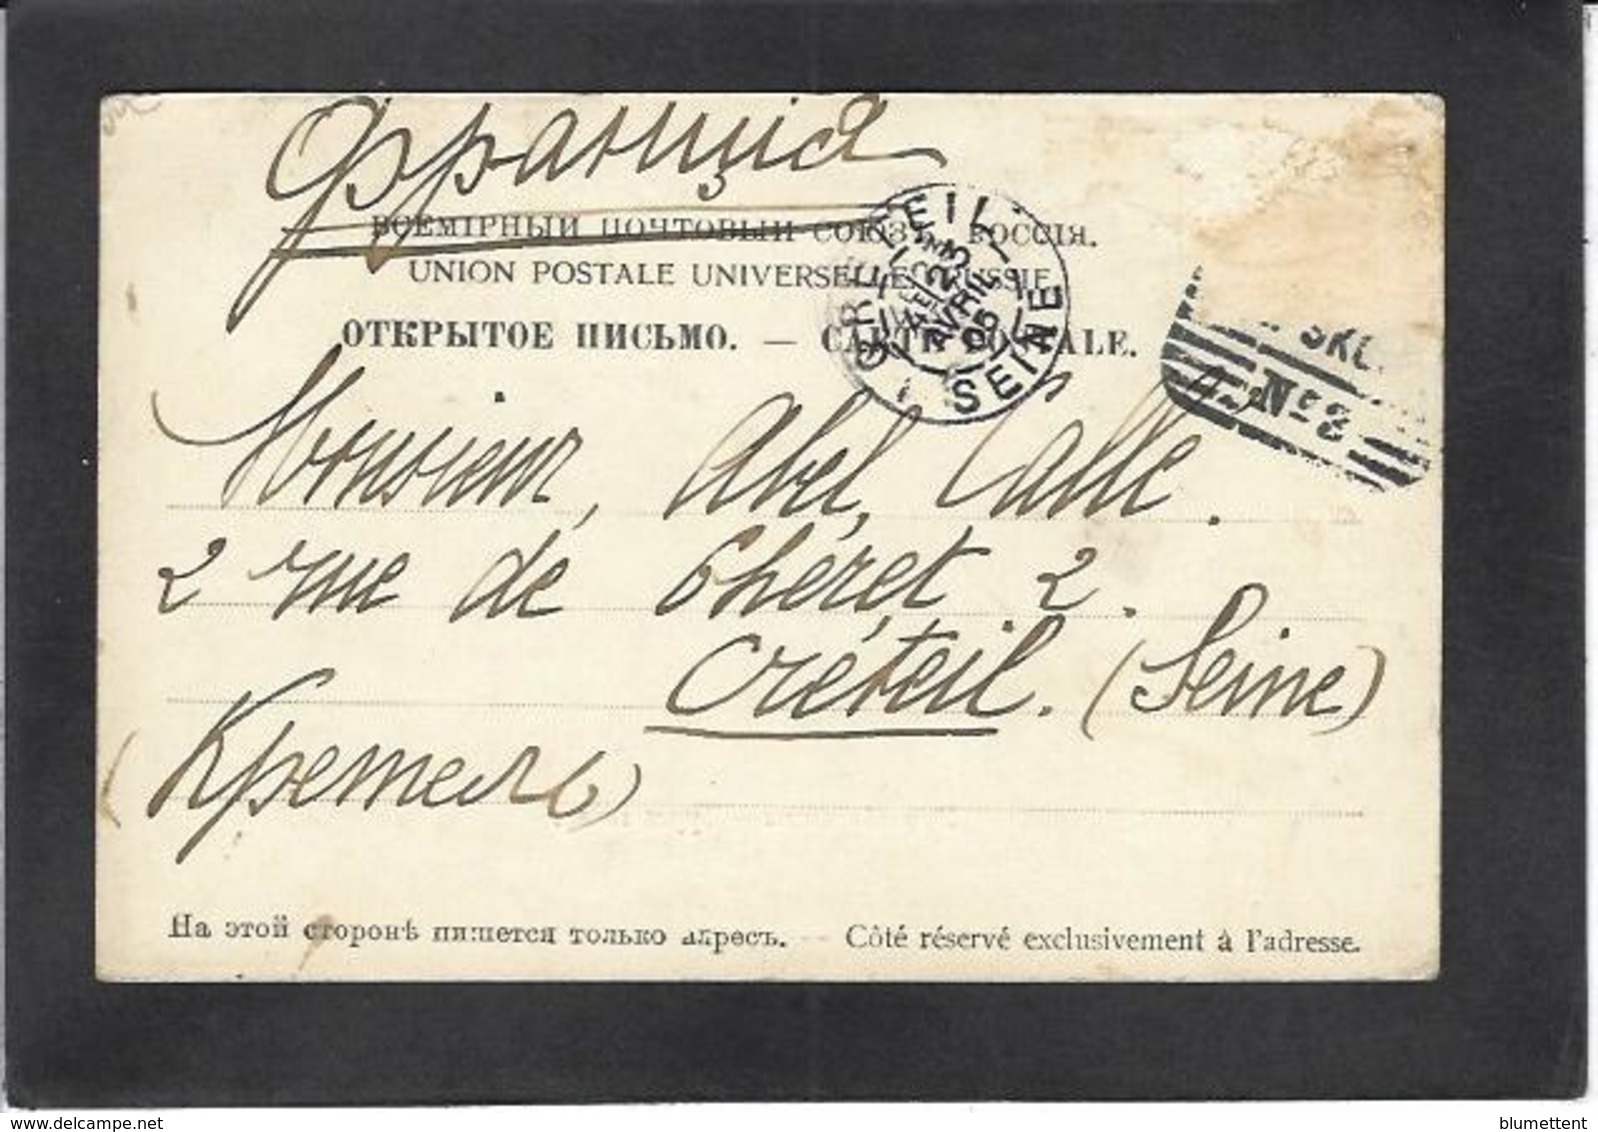 Франція
ВСЕМІРНЫЙ ПОЧТОВЫЙ СОЮЗЪ. РОССІЯ.
UNION POSTALE UNIVERSELLE. RUSSIE.
ОТКРЫТОЕ ПИСЬМО. — CARTE POSTALE.
CRETEIL
23
AVRIL
05
SEINE
№ 3
Monsieur, Abel,
2 rue de Chéret 2.
Créteil. (Seine)
(Кретель)
На этой сторонѣ пишется только адресъ. — Côté réservé exclusivement à l'adresse.
blumettent